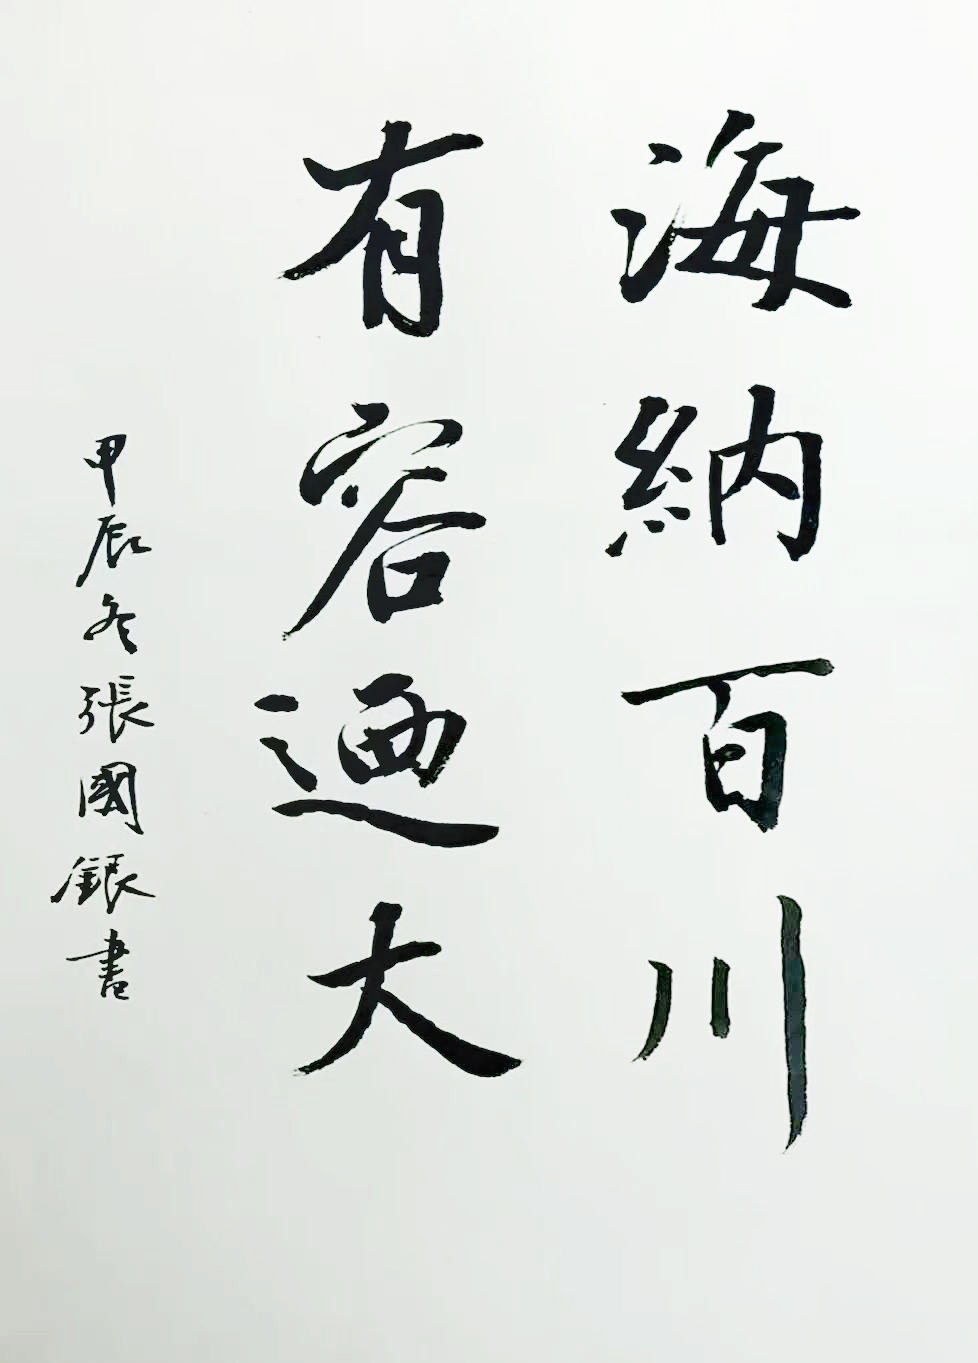 海納百川
有容迺大
甲辰冬張國銀書